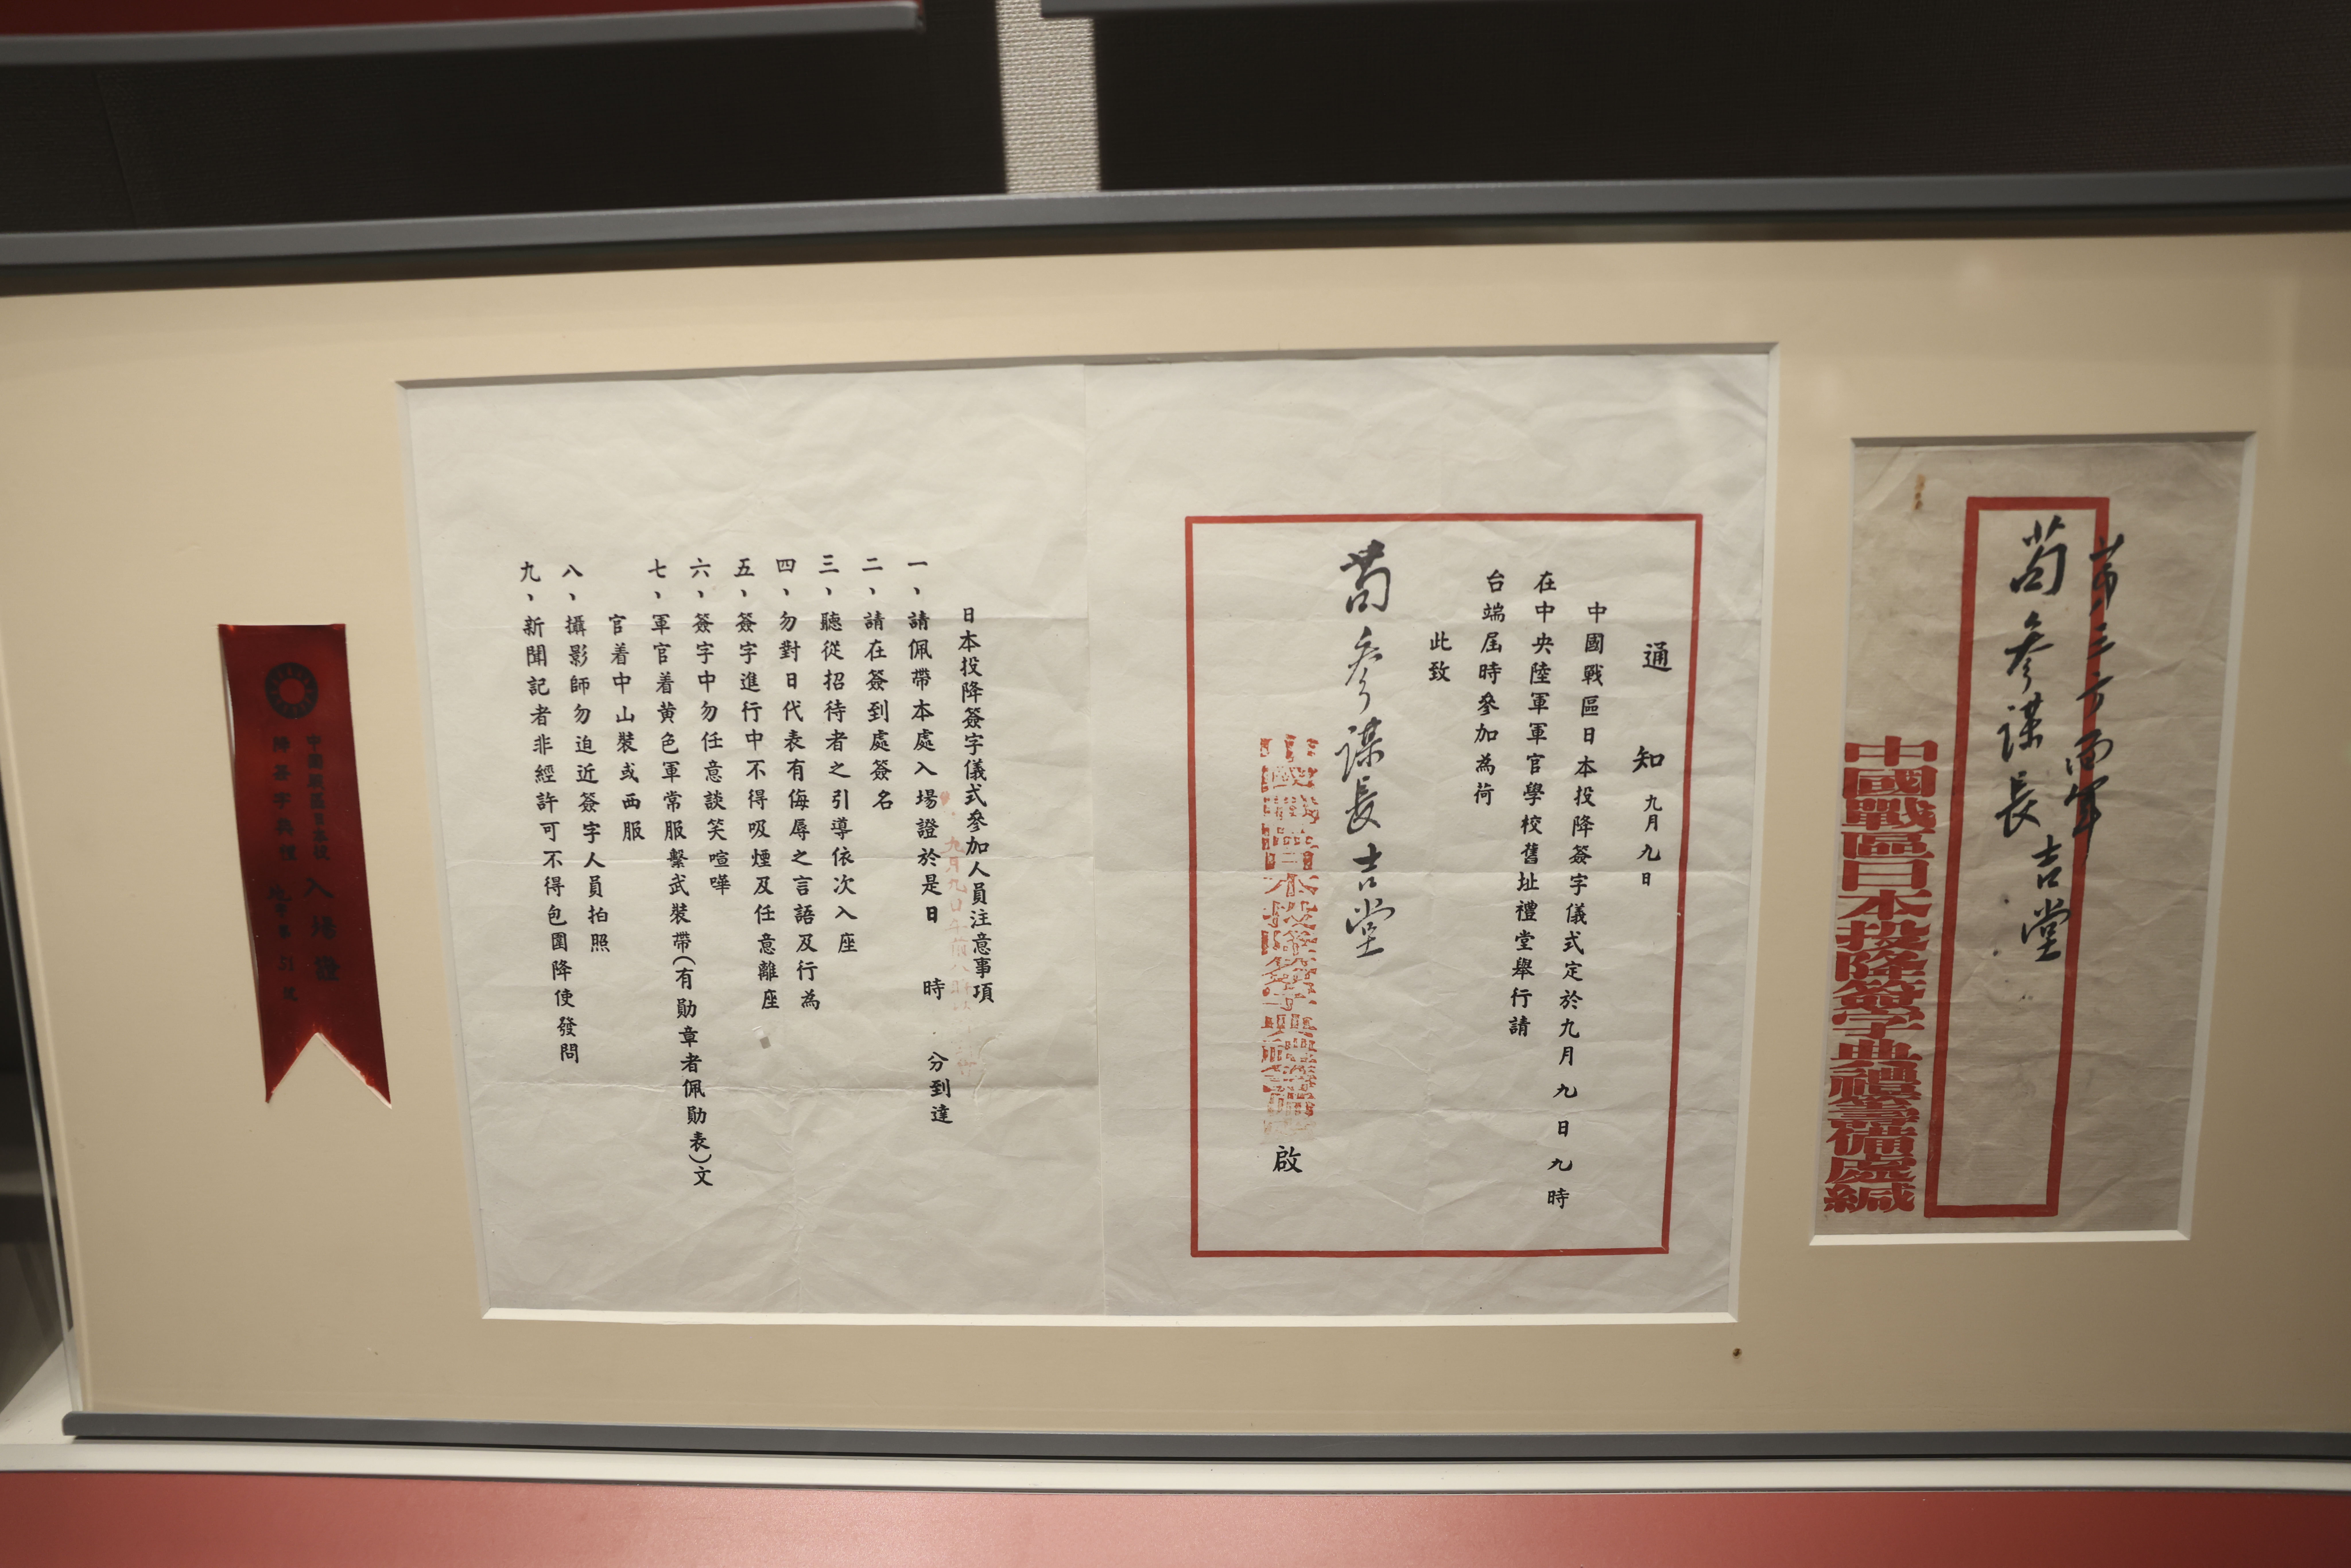 第三方面軍
苟參謀長吉堂
中國戰區日本投降簽字典禮籌備處緘
通知 九月九日
中國戰區日本投降簽字儀式定於九月九日九時
在中央陸軍軍官學校舊址禮堂舉行請
台端屆時參加為荷
此致
苟參謀長吉堂
中國戰區日本投降簽字典禮籌備處 啟
日本投降簽字儀式參加人員注意事項
一、請佩帶本處入場證於是日 時 分到達
九月九日午前八時
二、請在簽到處簽名
三、聽從招待者之引導依次入座
四、勿對日代表有侮辱之言語及行為
五、簽字進行中不得吸煙及任意離座
六、簽字中勿任意談笑喧嘩
七、軍官着黃色軍常服繫武裝帶(有勛章者佩勛表)文
官着中山裝或西服
八、攝影師勿迫近簽字人員拍照
九、新聞記者非經許可不得包圍降使發問
中國戰區日本投 入場證
降簽字典禮 第51號